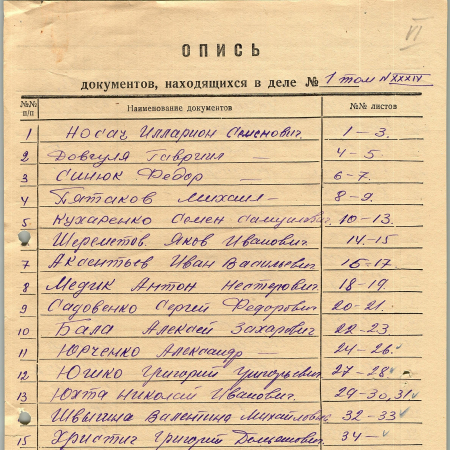 VI
ОПИСЬ
документов, находящихся в деле № 1 том N XXXIV
№№ п/п Наименование документов №№ листов
1 Носач Илларион Семенович 1-3.
2 Довгуля Гавриил — 4-5.
3 Синюк Федор — 6-7.
4 Пятаков Михаил — 8-9.
5 Кухаренко Семен 10-13.
Шереметов Яков Иванович. 14-15
7 Аксентьев Иван Васильевич. 16-17
8 Медик Антон Нестерович. 18-19
9 Садовенко Сергей Федорович 20-21.
10 Бала Алексей Захарович 22-23
11 Юрченко Александр — 24-26
12 Юшко Григорий Григорьевич 27-28
13 Юхта Николай Иванович. 29-30, 31
Швыгина Валентина Михайловна 32-33
15 Христич Григорий 34-